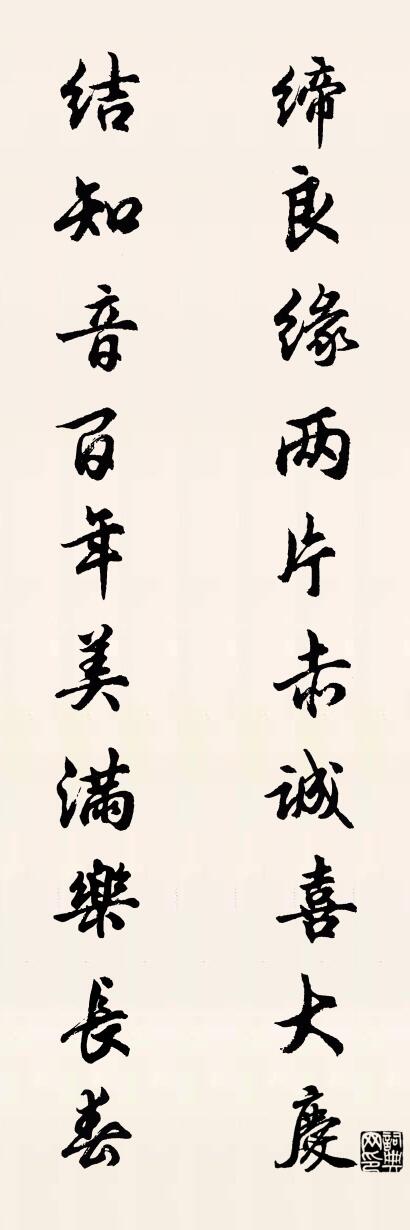 缔良缘两片赤诚喜大慶
结知音百年美滿樂長春
詞典网印